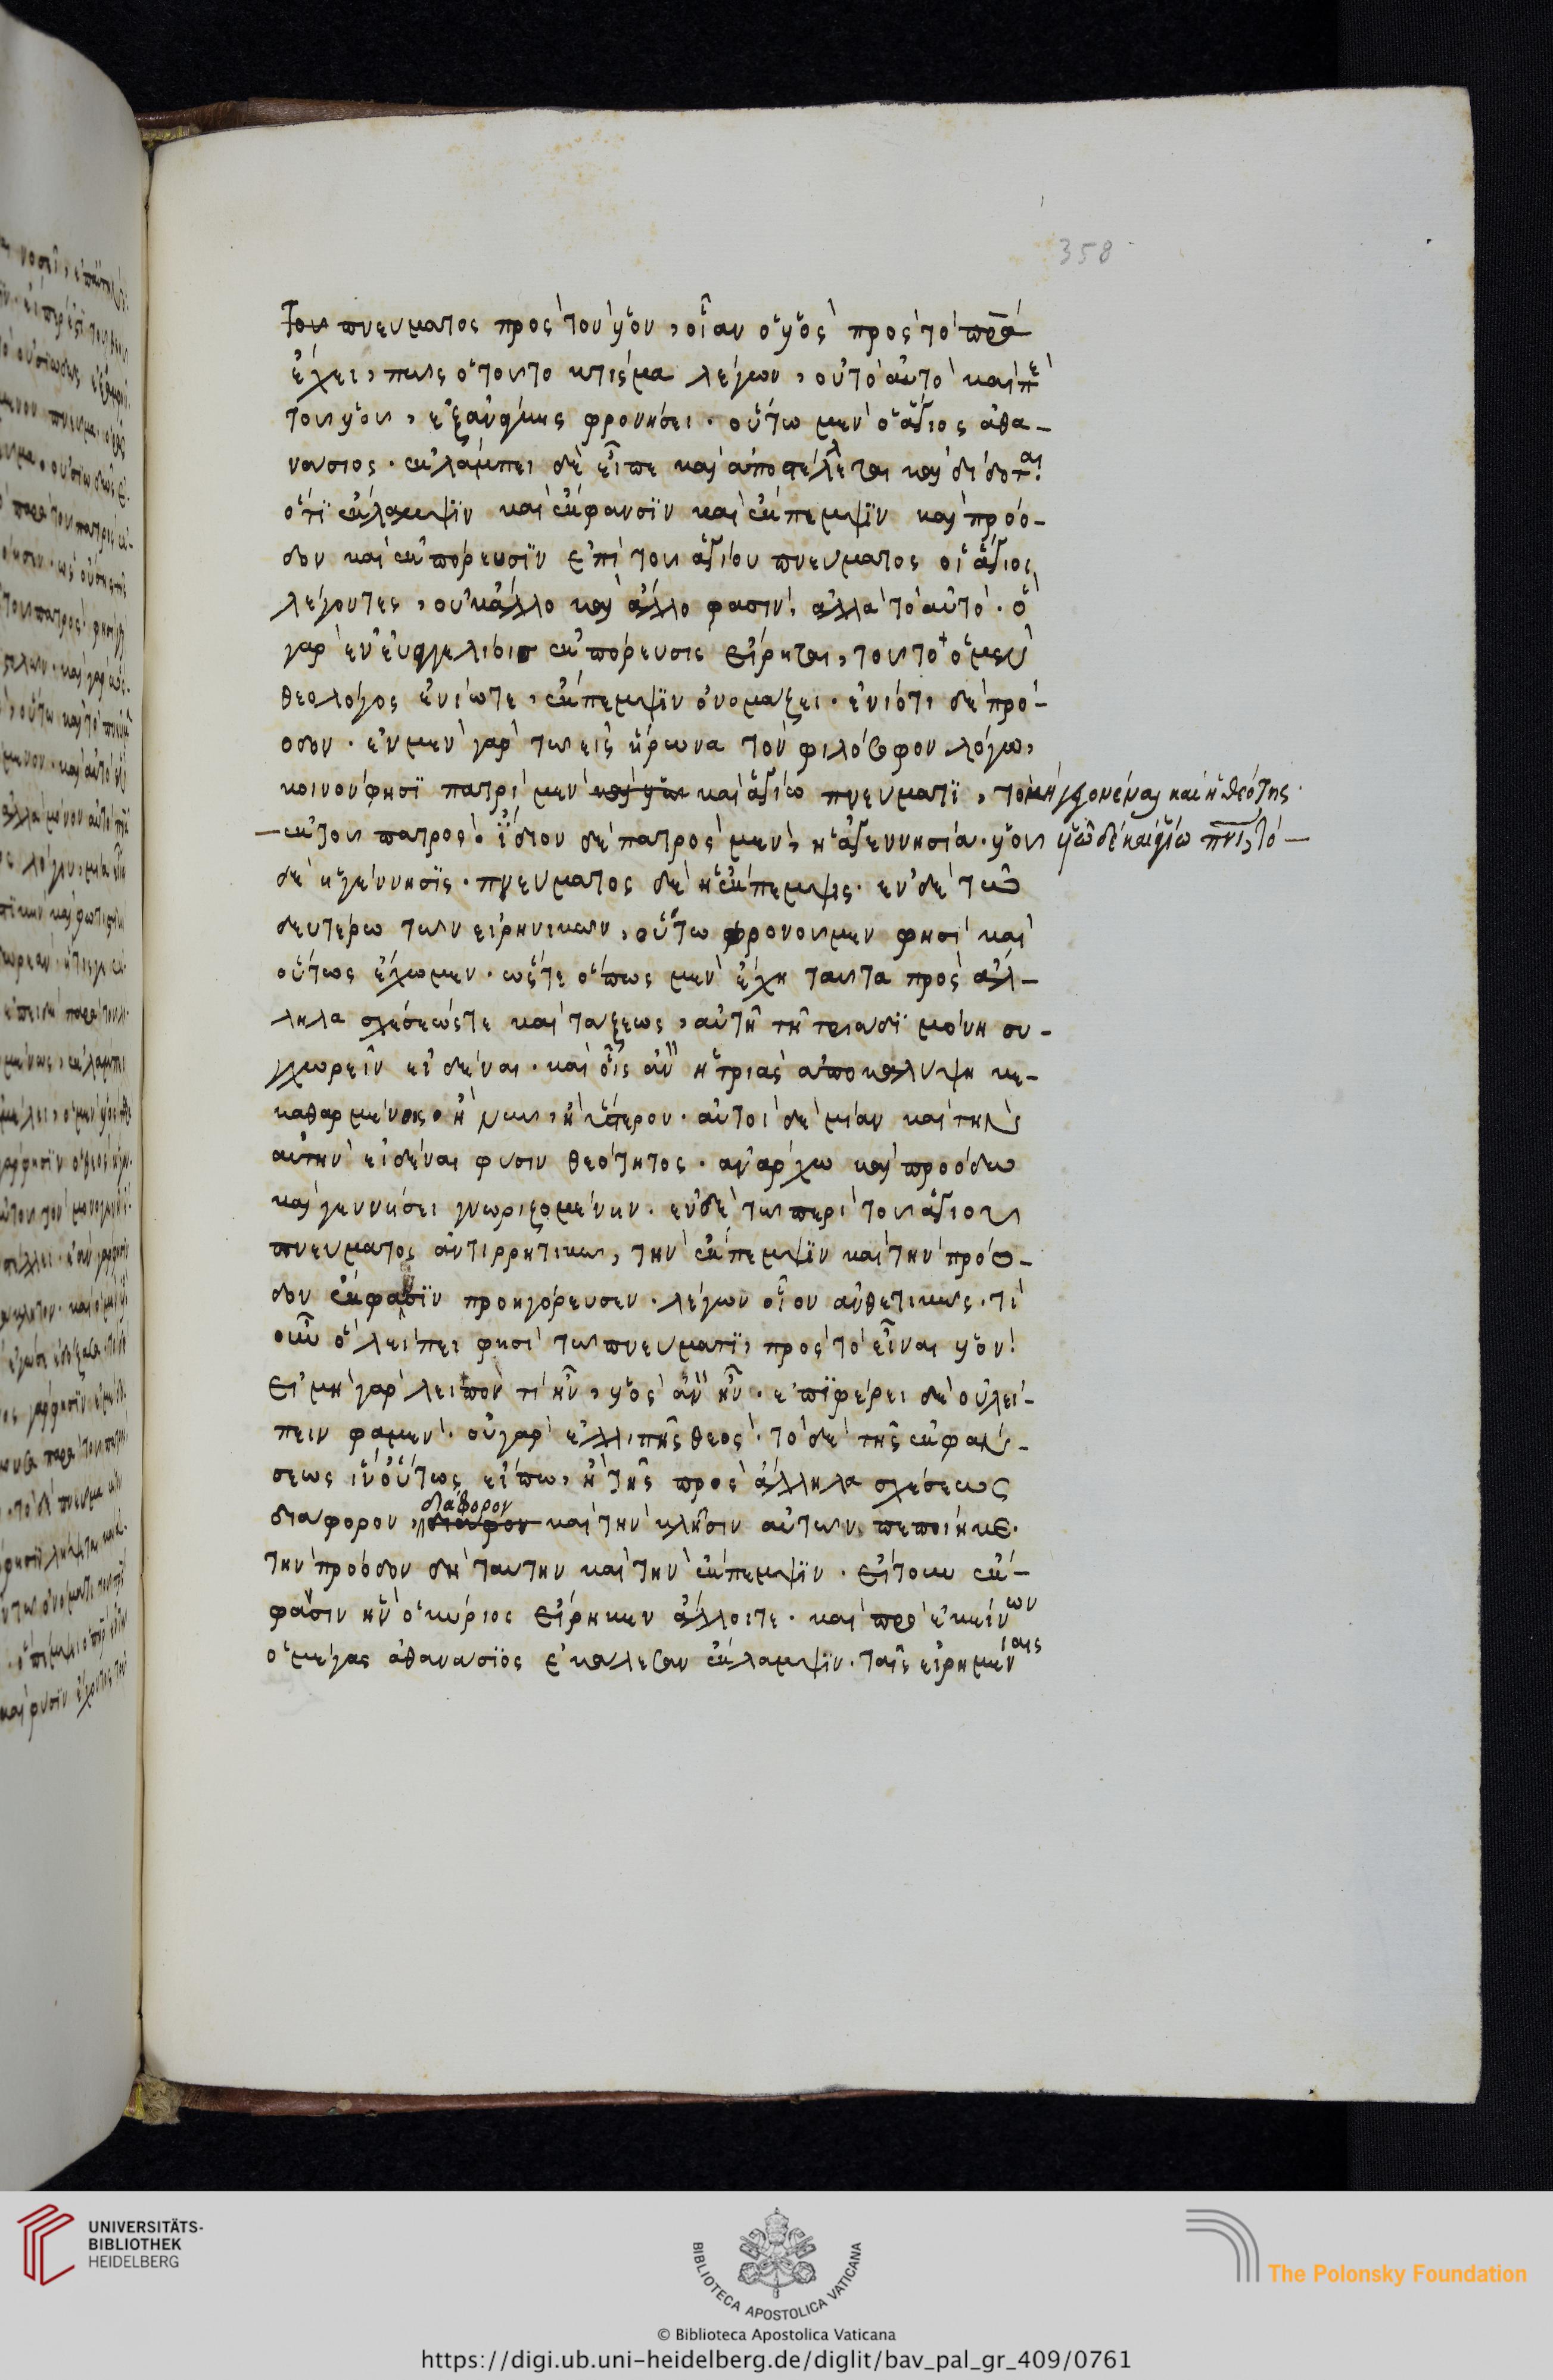 358
του πνευματος προς τον υἱον, οἵαν ὁ υἱὸς προς το πρ̅α̅
ἔχει, πως ὁ τουτο κτίσμα λέγων, οὐ το αὐτο και πε
του υἱου, ἐξ ἀνάγκης φρονήσει. οὕτω μεν ὁ ἅγιος ἀθα-
νασιος. ἐκλάμπει δε εἶπε και ἀποστέλλεται και δίδοται
ὅτι ἔκλαμψϊν και ἔκφανσϊν και ἔκπεμψϊν και προό-
δον και ἐκπόρευσϊν ἐπι του ἁγίου πνευματος οἱ ἅγιοι
λέγοντες, οὐκ ἄλλο και ἄλλο φασιν, ἀλλα το αὐτο. ὁ
γαρ ἐν εὐαγγελίοις ἐκπόρευσις εἴρηται, τουτο ὁ μεν
θεολόγος ἐνίωτε, ἔκπεμψϊν ὀνομάζει. ἐνιότι δε πρό-
οδον. ἐν μεν γαρ τω εἰς ἥρωνα τον φιλόσοφον λόγω,
κοινον φησϊ πατρι μεν και υἱω και ἁγίω πνευματϊ, το μη γεγονέναι και ἡ θεότης.
-ἐκ του πατρος. ἴδιον δε πατρος μεν, ἡ ἀγεννησία. υἱου υἱῶ δε και ἁγίω πν̅ι̅, το-
δε ἡ γέννησϊς. πνευματος δε ἡ ἔκπεμψις. ἐν δε τῶ
δευτέρω των εἰρηνικων, οὕτω φρονουμεν φησι και
οὕτως ἔχομεν. ὥστε ὅπως μεν ἔχη ταυτα προς ἀλ-
ληλα σχέσεώς τε και ταξεως, αὐτῆ τῆ τριαδϊ μόνη συ-
γχωρεῖν εἰδέναι. και οἷς ἂν ἡ τριας ἀποκαλυψη κε-
καθαρμένοις, ἢ νυν, ἢ ὕστερον. αὐτοι δε μίαν και την
αὐτην εἰδέναι φυσιν θεότητος. ἀνάρχω και προόδω
και γεννήσει γνωριζομένην. ἐν δε τω περι του ἁγίου
πνευματος ἀντιρρητικω, την ἔκπεμψϊν και την πρόο-
δον ἔκφασϊν προσηγόρευσεν. λέγων οἷον ἀνθετικως. τί
οὖν ὃ λείπει φησι τω πνευματϊ, προς το εἶναι υἱον;
εἰ μη γαρ λειπον τι ἦν, υἱος ἂν ἦν. ἐπϊφέρει δε οὐ λεί-
πειν φαμεν. οὐ γαρ ἐλλιπὴς θεος. το δε τῆς ἐκφαν-
σεως ἵν' οὕτως εἴπω, ἢ τῆς προς ἄλληλα σχέσεως
διαφορον, διαφον διάφορον και την κλῆσιν αὐτων πεποίηκε.
την πρόοδον δη ταυτην και την ἔκπεμψϊν. εἴτουν ἔκ-
φασιν ἣν ὁ κύριος εἴρηκεν ἄλλοιτε. και προ ἐκείνων
ὁ μέγας ἀθανασϊος ἐκαλεσαν ἔκλαμψϊν. ταῖς εἰρημέναις
UNIVERSITÄTS-
BIBLIOTHEK
HEIDELBERG
BIBLIOTECA APOSTOLICA VATICANA
The Polonsky Foundation
© Biblioteca Apostolica Vaticana
https://digi.ub.uni-heidelberg.de/diglit/bav_pal_gr_409/0761